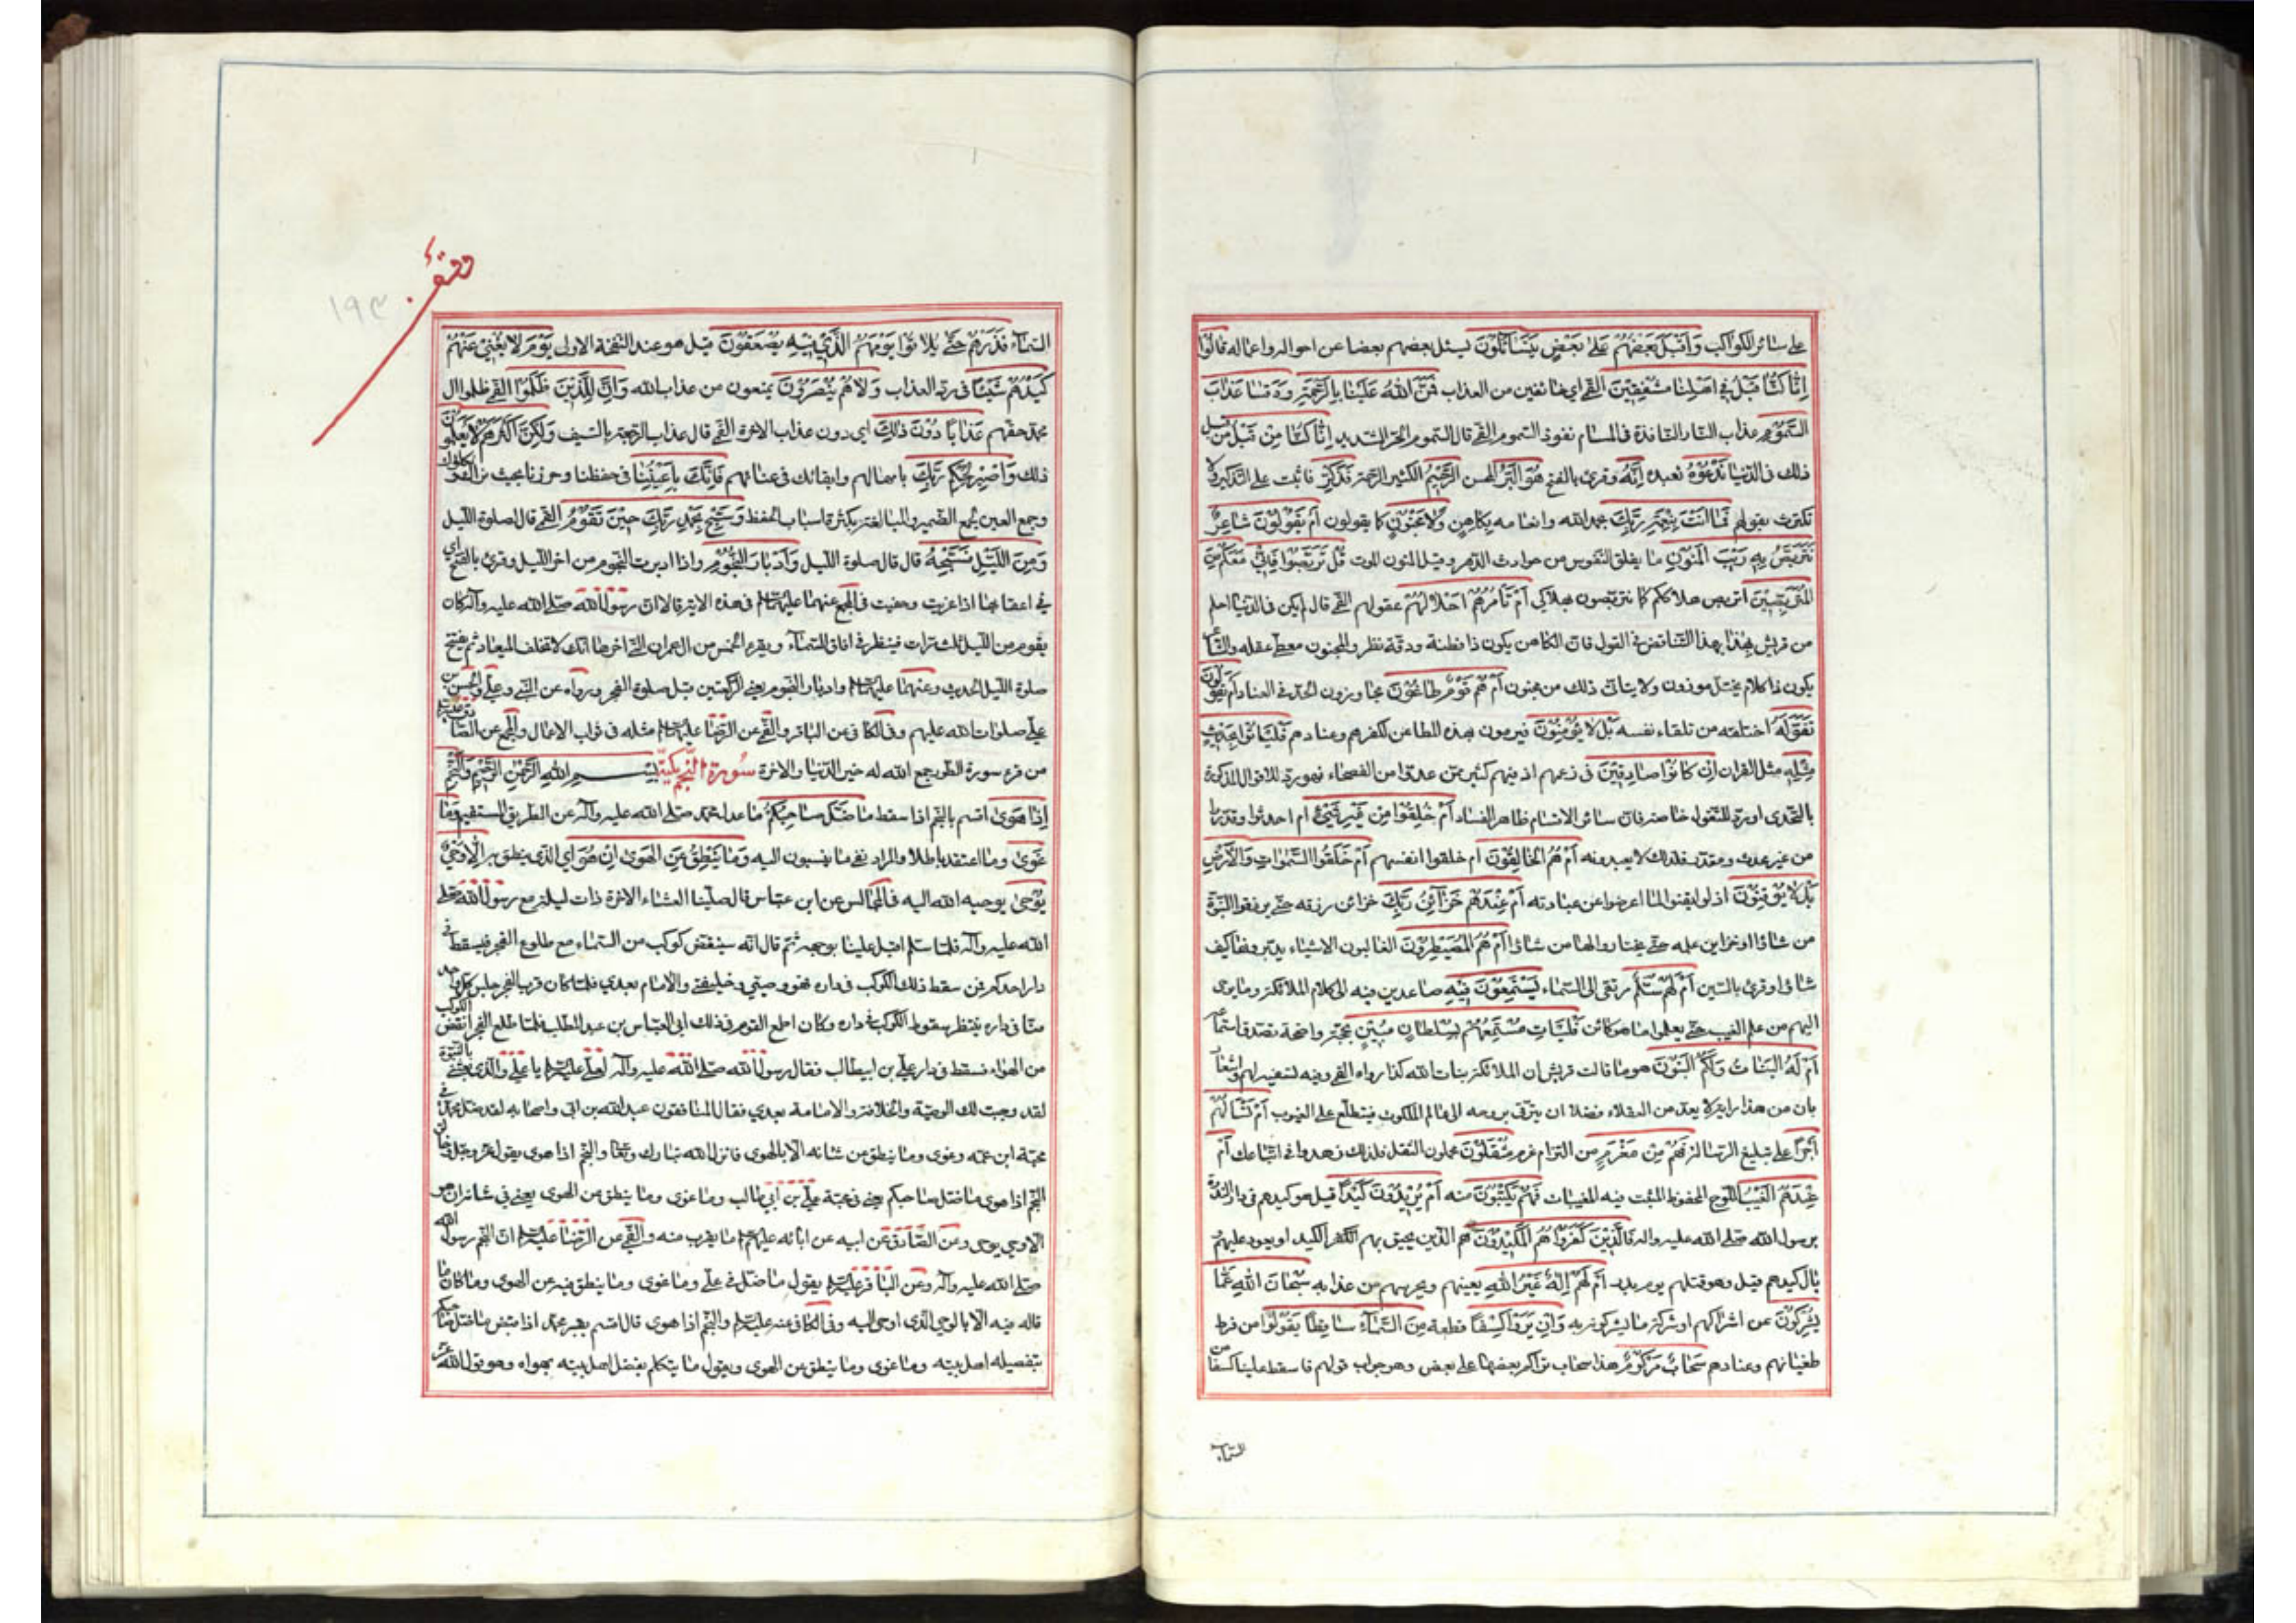 على سائر الكواكب وَأَقْبَلَ بَعْضُهُمْ عَلىٰ بَعْضٍ يَتَسٰائَلُونَ يسئل بعضهم بعضا عن احواله واعماله قٰالُوا
اِنّٰا كُنّٰا قَبْلُ فِي اَهْلِنٰا مُشْفِقِينَ القمي اي خائفين من العذاب فَمَنَّ اللهُ عَلَيْنٰا بالرحمة وَوَقٰينٰا عَذٰابَ
السَّمُومِ عذاب النار النافذة في المسام نفوذ السموم القمي قال السموم الحر الشديد اِنّٰا كُنّٰا مِنْ قَبْلُ من قبل
ذلك في الدنيا نَدْعُوهُ نعبده اِنَّهُ وقرئ بالفتح هُوَ الْبَرُّ المحسن الرَّحِيمُ الكثير الرحمة فَذَكِّرْ فاثبت على التذكير ولا
تكترث بقولهم فَمٰا اَنْتَ بِنِعْمَةِ رَبِّكَ بحمد الله وانعامه بِكٰاهِنٍ وَلٰا مَجْنُونٍ كما يقولون اَمْ يَقُولُونَ شٰاعِرٌ
نَتَرَبَّصُ بِهِ رَيْبَ الْمَنُونِ ما يقلق النفوس من حوادث الدهر وقيل المنون الموت قُلْ تَرَبَّصُوا فَاِنِّي مَعَكُمْ مِنَ
الْمُتَرَبِّصِينَ اتربص هلاككم كما تتربصون هلاكي اَمْ تَأْمُرُهُمْ اَحْلٰامُهُمْ عقولهم القمي قال لم يكن في الدنيا احلم
من قريش بِهٰذٰا بهذا التناقض في القول فان الكاهن يكون ذا فطنة ودقة نظر والمجنون مغطى عقله والشاعر
يكون ذا كلام مخيل موزون ولا يتاتى ذلك من مجنون اَمْ هُمْ قَوْمٌ طٰاغُونَ مجاوزون الحد في العناد اَمْ يَقُولُونَ
تَقَوَّلَهُ اختلقه من تلقاء نفسه بَلْ لٰا يُؤْمِنُونَ فيرمون بهذه المطاعن لكفرهم وعنادهم فَلْيَأْتُوا بِحَدِيثٍ
مِثْلِهِ مثل القران اِنْ كٰانُوا صٰادِقِينَ في زعمهم اذ فيهم كثير ممن عدوا من الفصحاء فهو رد للاقوال المذكورة
بالتحدي او رد للتقول خاصة فان سائر الاقسام ظاهر الفساد اَمْ خُلِقُوا مِنْ غَيْرِ شَيْءٍ ام احدثوا وقدروا
من غير محدث ومقدر فلذلك لا يعبدونه اَمْ هُمُ الْخٰالِقُونَ ام خلقوا انفسهم اَمْ خَلَقُوا السَّمٰوٰاتِ وَالْاَرْضَ
بَلْ لٰا يُوقِنُونَ اذ لو ايقنوا لما اعرضوا عن عبادته اَمْ عِنْدَهُمْ خَزٰائِنُ رَبِّكَ خزائن رزقه حتى يرزقوا النبوة
من شاؤا او خزاين علمه حتى يختاروا لها من شاؤا اَمْ هُمُ الْمُصَيْطِرُونَ الغالبون الاشياء يدبرونها كيف
شاؤا وقرئ بالسين اَمْ لَهُمْ سُلَّمٌ مرتقى الى السماء يَسْتَمِعُونَ فِيهِ صاعدين فيه الى كلام الملائكة وما يوحى
اليهم من علم الغيب حتى يعلموا ما هو كائن فَلْيَأْتِ مُسْتَمِعُهُمْ بِسُلْطٰانٍ مُبِينٍ بحجة واضحة تصدق استماعه
اَمْ لَهُ الْبَنٰاتُ وَلَكُمُ الْبَنُونَ هو ما قالت قريش ان الملائكة بنات الله كذا رواه القمي وفيه تسفيه لهم واشعار
بان من هذا رايه لا يعد من العقلاء فضلا ان يترقى بروحه الى عالم الملكوت فيتطلع على الغيوب اَمْ تَسْأَلُهُمْ
اَجْرًا على تبليغ الرسالة فَهُمْ مِنْ مَغْرَمٍ من التزام غرم مُثْقَلُونَ محملون الثقل فلذلك زهدوا في اتباعك اَمْ
عِنْدَهُمُ الْغَيْبُ اللوح المحفوظ المثبت فيه المغيبات فَهُمْ يَكْتُبُونَ منه اَمْ يُرِيدُونَ كَيْدًا قيل هو كيدهم في دار الندوة
برسول الله صلى الله عليه واله فَالَّذِينَ كَفَرُوا هُمُ الْمَكِيدُونَ هم الذين يحيق بهم الكيد او يعود عليهم
وبال كيدهم قيل وهو قتلهم يوم بدر اَمْ لَهُمْ اِلٰهٌ غَيْرُ اللهِ يعينهم ويحرسهم من عذابه سُبْحٰانَ اللهِ عَمّٰا
يُشْرِكُونَ عن اشراكهم او شركة ما يشركونه به وَاِنْ يَرَوْا كِسْفًا قطعة مِنَ السَّمٰاءِ سٰاقِطًا يَقُولُوا من فرط
طغيانهم وعنادهم سَحٰابٌ مَرْكُومٌ هذا سحاب تراكم بعضها على بعض وهو جواب قولهم فاسقط علينا كسفا من
السماء
السماء فَذَرْهُمْ حَتّٰى يُلٰاقُوا يَوْمَهُمُ الَّذِي فِيهِ يُصْعَقُونَ قيل هو عند النفخة الاولى يَوْمَ لٰا يُغْنِي عَنْهُمْ
كَيْدُهُمْ شَيْئًا في رد العذاب وَلٰا هُمْ يُنْصَرُونَ يمنعون من عذاب الله وَاِنَّ لِلَّذِينَ ظَلَمُوا القمي ظلموا ال
محمد حقهم عَذٰابًا دُونَ ذٰلِكَ اي دون عذاب الاخرة القمي قال عذاب الرجعة بالسيف وَلٰكِنَّ اَكْثَرَهُمْ لٰا يَعْلَمُونَ
ذلك وَاصْبِرْ لِحُكْمِ رَبِّكَ بامهالهم وابقائك في عنائهم فَاِنَّكَ بِاَعْيُنِنٰا في حفظنا وحرزنا بحيث نراك ونكلؤك
وجمع العين لجمع الضمير والمبالغة بكثرة اسباب الحفظ وَسَبِّحْ بِحَمْدِ رَبِّكَ حِينَ تَقُومُ القمي قال لصلوة الليل
وَمِنَ اللَّيْلِ فَسَبِّحْهُ قال قال صلوة الليل وَاَدْبٰارَ النُّجُومِ واذا ادبرت النجوم من اخر الليل وقرئ بالفتح اي
في اعقابها اذا غربت وخفيت في المجمع عنهما عليهما السلام في هذه الاية قالا ان رسول الله صلى الله عليه وآله كان
يقوم من الليل ثلث مرات فينظر في افاق السماء ويقرء الخمس من ال عمران التي اخرها انك لا تخلف الميعاد ثم يفتتح
صلوة الليل الحديث وعنهما عليهما السلام وادبار النجوم يعني الركعتين قبل صلوة الفجر ورواه عن النبي وعلي والحسن بن
علي صلوات الله عليهم وفي الكافي عن الباقر والقمي عن الرضا عليهما السلام مثله في ثواب الاعمال والمجمع عن الصادق عليه السلام
من قرء سورة الطور جمع الله له خير الدنيا والاخرة سُورة النَّجم مكيّة بِسْمِ اللهِ الرَّحْمٰنِ الرَّحِيمِ وَالنَّجْمِ
اِذٰا هَوىٰ اقسم بالنجم اذا سقط مٰا ضَلَّ صٰاحِبُكُمْ ما عدل محمد صلى الله عليه وآله عن الطريق المستقيم وَمٰا
غَوىٰ وما اعتقد باطلا والمراد نفي ما ينسبون اليه وَمٰا يَنْطِقُ عَنِ الْهَوىٰ اِنْ هُوَ اي الذي ينطق به اِلّٰا وَحْيٌ
يُوحىٰ يوحيه الله اليه في المجالس عن ابن عباس قال صلينا العشاء الاخرة ذات ليلة مع رسول الله صلى
الله عليه وآله فلما سلم اقبل علينا بوجهه ثم قال انه سينقض كوكب من السماء مع طلوع الفجر فيسقط في
دار احدكم فمن سقط ذلك الكوكب في داره فهو وصيي وخليفتي والامام بعدي فلما كان قرب الفجر جلس كل واحد
منا في داره ينتظر سقوط الكوكب في داره وكان اطمع القوم في ذلك ابي العباس بن عبد المطلب فلما طلع الفجر انقض الكوكب
من الهواء فسقط في دار علي بن ابيطالب فقال رسول الله صلى الله عليه وآله لعلي عليه السلام يا علي والذي بعثني بالنبوة
لقد وجبت لك الوصية والخلافة والامامة بعدي فقال المنافقون عبد الله بن ابي واصحابه لقد ضل محمد في
محبة ابن عمه وغوى وما ينطق في شانه الا بالهوى فانزل الله تبارك وتعالى والنجم اذا هوى يقول عز وجل وخالق
النجم اذا هوى ما ضل صاحبكم يعني في محبة علي بن ابي طالب وما غوى وما ينطق عن الهوى يعني في شانه ان هو
الا وحي يوحى وعن الصادق عن ابيه عن ابائه عليهم السلام ما يقرب منه والقمي عن الرضا عليه السلام ان النجم رسول الله
صلى الله عليه وآله وعن الباقر عليه السلام يقول ما ضل في علي وما غوى وما ينطق فيه عن الهوى وما كان ما
قاله فيه الا بالوحي الذي اوحى اليه وفي الكافي عنه عليه السلام والنجم اذا هوى قال اقسم بقبر محمد اذا قبض ما ضل صاحبكم
بتفضيله اهل بيته وما غوى وما ينطق عن الهوى ويقول ما يتكلم بفضل اهل بيته بهواه وهو قول الله عز